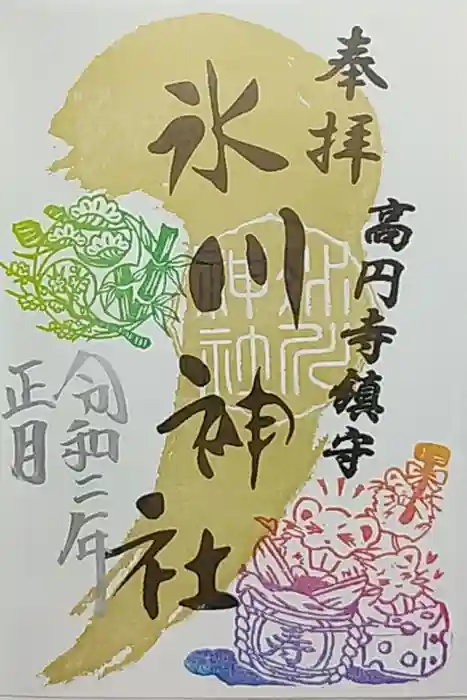 奉拝
高円寺鎮守
氷川神社
氷川
神社
令和二年
正月
寿